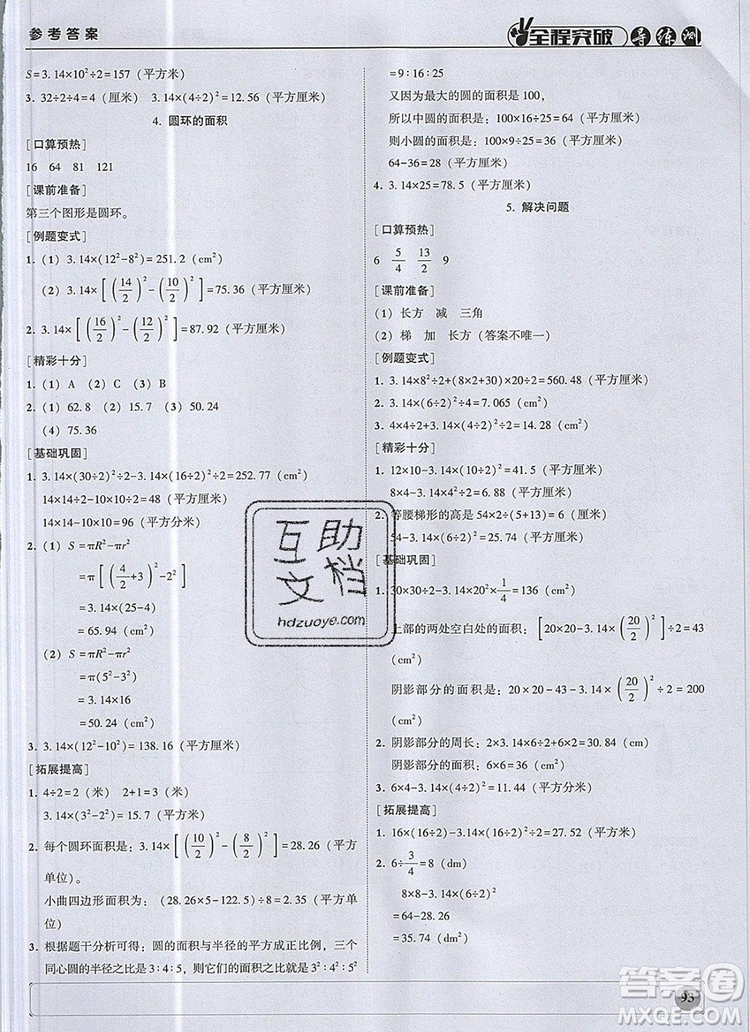 参考答案
全程突破 导练测
S=3.14×10²÷2=157（平方米）
3. 32÷2÷4=4（厘米） 3.14×(4÷2)²=12.56（平方厘米）
4. 圆环的面积
[口算预热]
16 64 81 121
[课前准备]
第三个图形是圆环。
[例题变式]
1.（1）3.14×(12²-8²)=251.2（cm²）
（2）3.14×[(14/2)²-(10/2)²]=75.36（平方厘米）
2. 3.14×[(16/2)²-(12/2)²]=87.92（平方厘米）
[精彩十分]
1.（1）A （2）C （3）B
2.（1）62.8 （2）15.7 （3）50.24
（4）75.36
[基础巩固]
1. 3.14×(30÷2)²÷2-3.14×(16÷2)²÷2=252.77（cm²）
14×14÷2-10×10÷2=48（平方厘米）
14×14-10×10=96（平方分米）
2.（1）S=πR²-πr²
=π[(4/2+3)²-2²]
=3.14×(25-4)
=65.94（cm²）
（2）S=πR²-πr²
=π(5²-3²)
=3.14×16
=50.24（cm²）
3. 3.14×(12²-10²)=138.16（平方厘米）
[拓展提高]
1. 4÷2=2（米） 2+1=3（米）
3.14×(3²-2²)=15.7（平方米）
2. 每个圆环面积是：3.14×[(10/2)²-(8/2)²]=28.26（平方
单位）。
小曲四边形面积为：（28.26×5-122.5）÷8=2.35（平方
单位）
3. 根据题干分析可得：圆的面积与半径的平方成正比例，三个
同心圆的半径之比是3:4:5，则它们的面积之比是3²:4²:5²
=9:16:25
又因为最大的圆的面积是100，
所以中圆的面积是：100×16÷25=64（平方厘米）
则小圆的面积是：100×9÷25=36（平方厘米）
64-36=28（平方厘米）
4. 3.14×25=78.5（平方厘米）
5. 解决问题
[口算预热]
6 5/4 13/2 9
[课前准备]
（1）长方 减 三角
（2）梯 加 长方（答案不唯一）
[例题变式]
1. 3.14×8²÷2+(8×2+30)×20÷2=560.48（平方厘米）
2. 3.14×(6÷2)²÷4=7.065（cm²）
3. 4×4÷2+3.14×(4÷2)²÷2=14.28（平方厘米）
[精彩十分]
1. 12×10-3.14×(10÷2)²=41.5（平方厘米）
8×4-3.14×4²÷2=6.88（平方厘米）
2. 等腰梯形的高是54×2÷(5+13)=6（厘米）
54-3.14×(6÷2)²=25.74（平方厘米）
[基础巩固]
1. 30×30÷2-3.14×20²×1/4=136（cm²）
上部的两处空白处的面积：[20×20-3.14×(20/2)²]÷2=43
（cm²）
阴影部分的面积是：20×20-43-3.14×(20/2)²÷2=200
（cm²）
2. 阴影部分的周长：2×3.14×6÷2+6×2=30.84（厘米）
阴影部分的面积：6×6=36（平方厘米）
3. 6×4-3.14×(4÷2)²=11.44（平方厘米）
[拓展提高]
1. 16×(16÷2)-3.14×(16÷2)²÷2=27.52（平方厘米）
2. 6÷3/4=8（dm）
8×8-3.14×(6÷2)²
=64-28.26
=35.74（dm²）
互助
文档
hdzuoye.com
93
答案圈
MXQE.COM